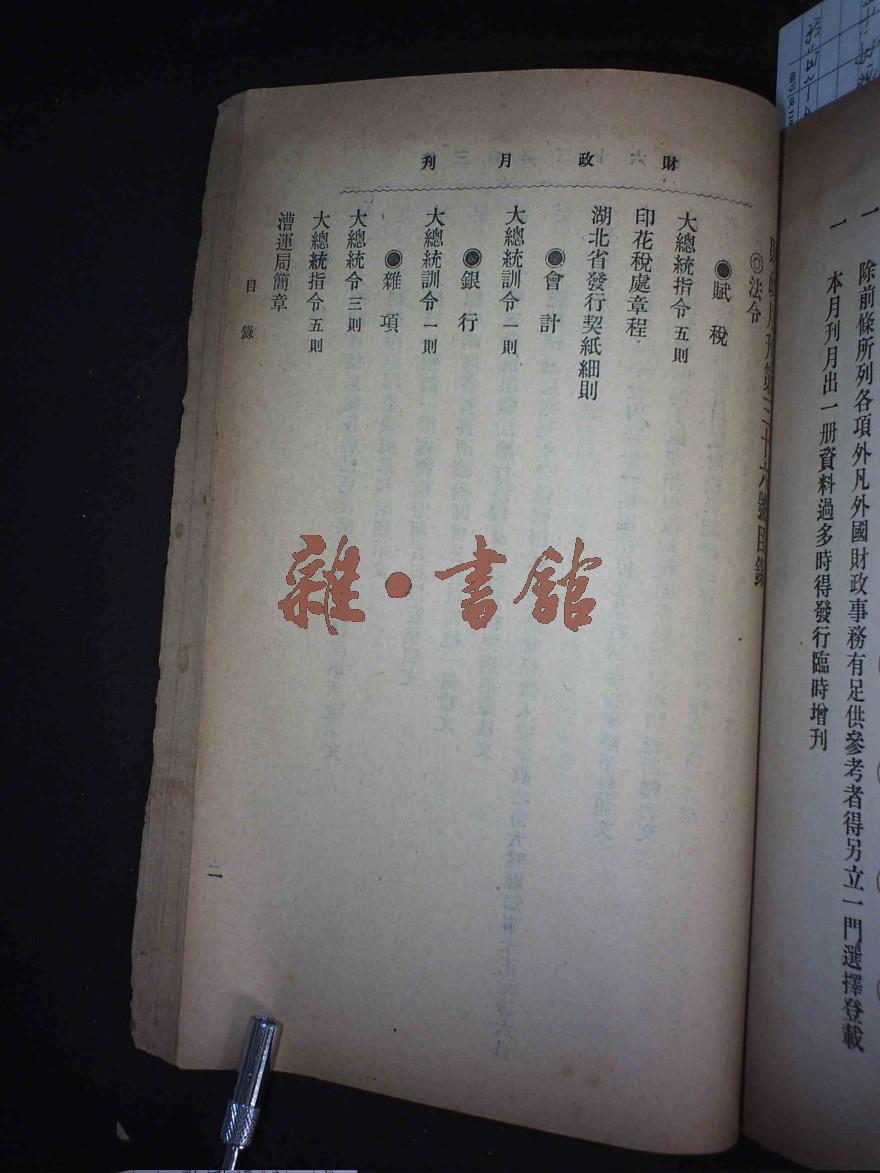 一　除前條所列各項外凡外國財政事務有足供參考者得另立一門選擇登載
一　本月刊月出一册資料過多時得發行臨時增刊
財政月刊
財政月刊第三十六號目錄
◎法令
◉賦稅
大總統指令五則
印花稅處章程
湖北省發行契紙細則
◉會計
大總統訓令一則
◉銀行
大總統訓令一則
◉雜項
大總統令三則
大總統指令五則
漕運局簡章
目錄
二
雜·書館